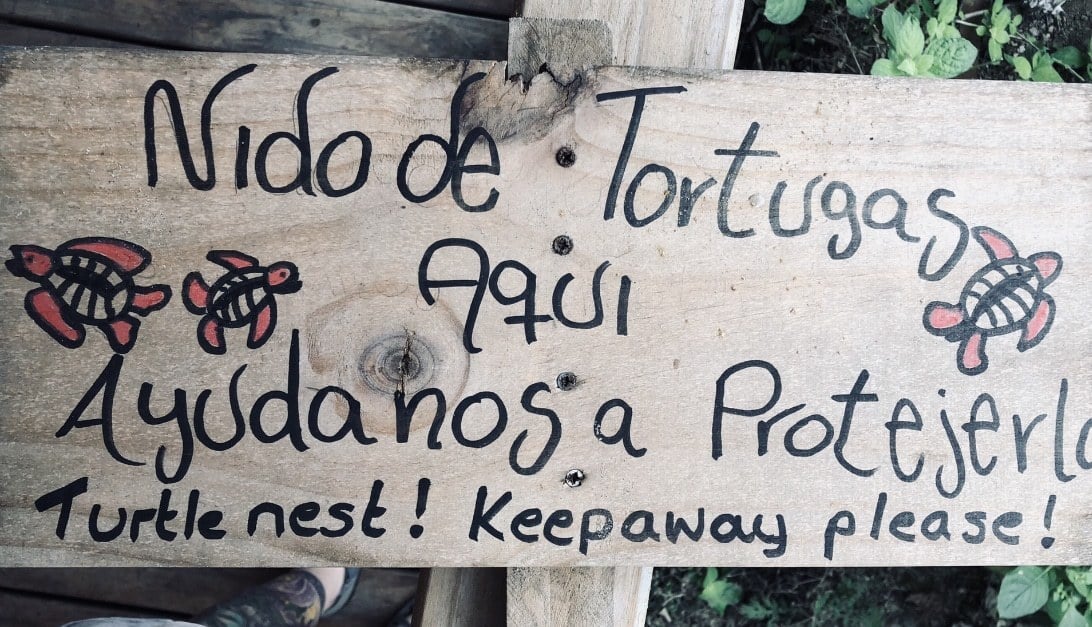 Nido de Tortugas
Aqui
Ayudanos a Protejerlo
Turtle nest! Keep away please!